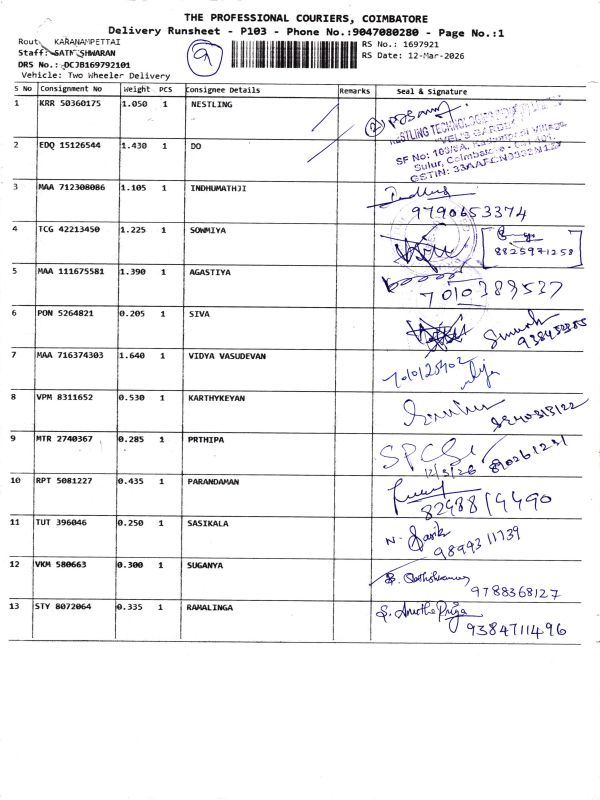 THE PROFESSIONAL COURIERS, COIMBATORE
Delivery Runsheet - P103 - Phone No.:9047080280 - Page No.:1
KARANAMPETTAI
RS No.: 1697921
Staff:
9
RS Date: 12-Mar-2026
DRS No.: DCJB169792101
Vehicle: Two Wheeler Delivery
S No Consignment No Weight PCS Consignee Details Remarks Seal & Signature
1 KRR 50360175 1.050 1 NESTLING
2
NESTLING TECHNOLOGIES
2 EDQ 15126544 1.430 1 DO
SF No: Village,
Sulur, Coimbatore
GSTIN:
3 MAA 712308086 1.105 1 INDHUMATHJI
9790653374
4 TCG 42213450 1.225 1 SOWMIYA
8825971258
5 MAA 111675581 1.390 1 AGASTIYA
7010389537
6 PON 5264821 0.205 1 SIVA
7 MAA 716374303 1.640 1 VIDYA VASUDEVAN
8 VPM 8311652 0.530 1 KARTHYKEYAN
9 MTR 2740367 0.285 1 PRTHIPA
12/3/26
10 RPT 5081227 0.435 1 PARANDAMAN
11 TUT 396046 0.250 1 SASIKALA
12 VKM 580663 0.300 1 SUGANYA
9788368127
13 STY 8072064 0.335 1 RAMALINGA
9384711496